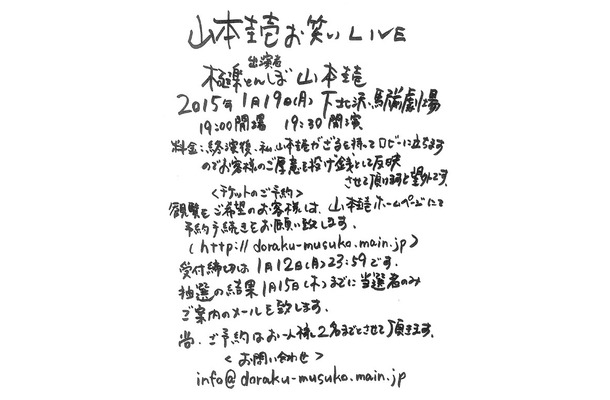 山本圭壱お笑いLIVE
出演者
極楽とんぼ 山本圭壱
2015年 1月19日(月) 下北沢・駅前劇場
19:00開場 19:30開演
料金:終演後、私、山本圭壱がざるを持ってロビーに立ちます
のでお客様のご厚意を投げ銭として反映
させて頂けますと望外です。
<チケットのご予約>
観覧をご希望のお客様は、山本圭壱ホームページにて
予約手続きをお願い致します。
(http://doraku-musuko.main.jp)
受付締切は1月12日(月)23:59です。
抽選の結果1月15日(木)までに当選者のみ
ご案内のメールを致します。
尚、ご予約はお一人様2名までとさせて頂きます。
<お問い合わせ>
info@doraku-musuko.main.jp